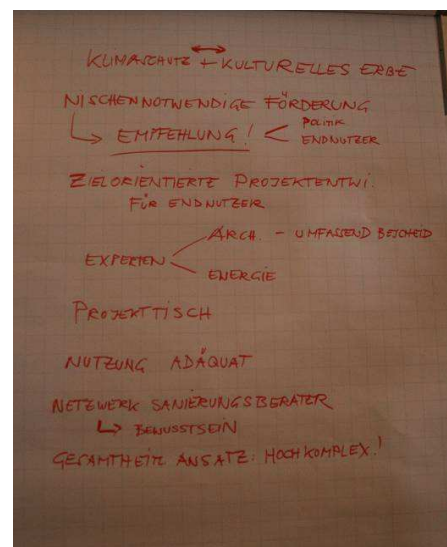 KLIMASCHUTZ ↔ + KULTURELLES ERBE
NISCHENNOTWENDIGE FÖRDERUNG
↳ EMPFEHLUNG! < POLITIK
ENDNUTZER
ZIELORIENTIERTE PROJEKTENTWI.
FÜR ENDNUTZER
ARCH. - UMFASSEND BESCHEID
EXPERTEN <
ENERGIE
PROJEKTTISCH
NUTZUNG ADÄQUAT
NETZWERK SANIERUNGSBERATER
↳ BEWUSSTSEIN
ANSATZ: HOCHKOMPLEX!